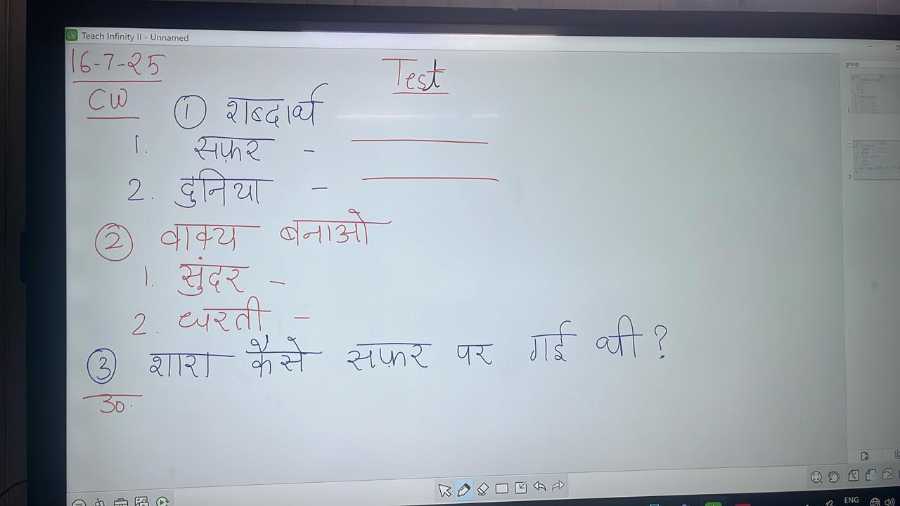 Teach Infinity II - Unnamed
16-7-25 Test
CW
① शब्दार्थ
1. सफ़र -
2. दुनिया -
② वाक्य बनाओ
1. सुंदर -
2. धरती -
③ शारा कैसे सफ़र पर गई थी?
उ०.
ENG